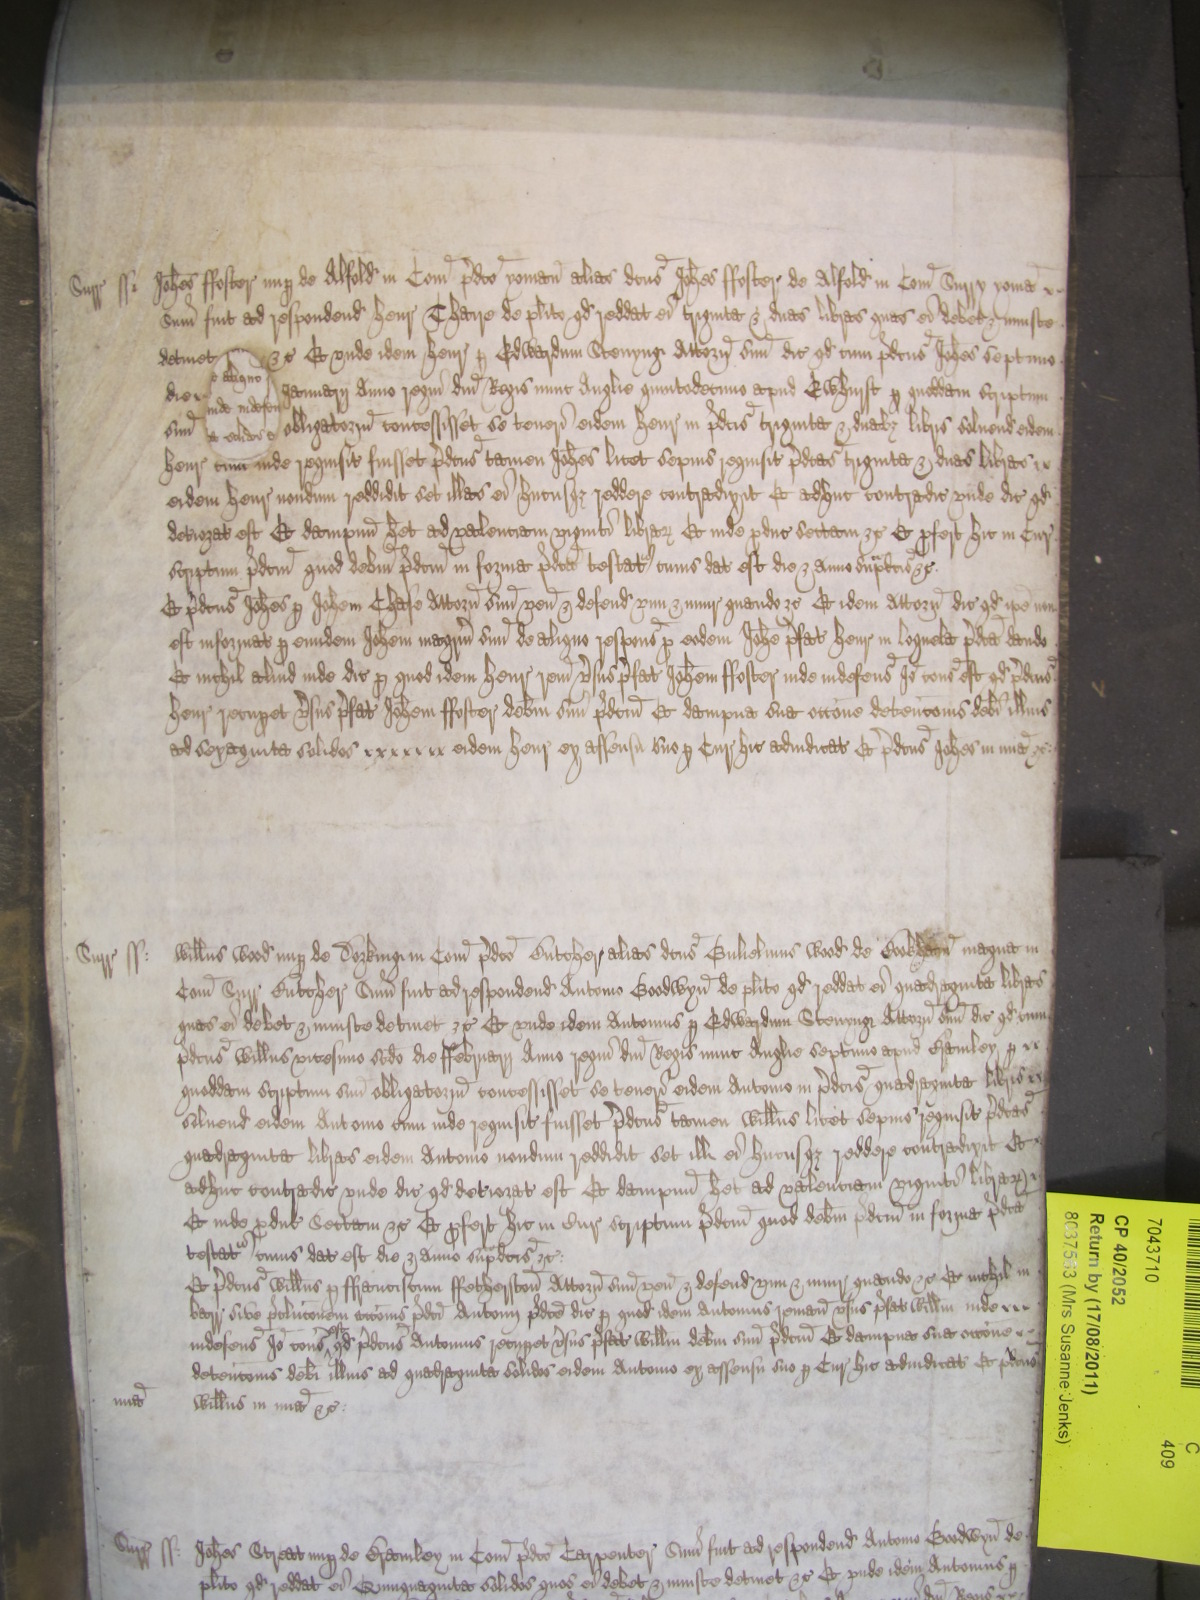 Surr ss: Johes ffoster nup de Alfold in Com p̄dco yoman alias dcus Johes ffoster de Alfold in Com Surry yoma
Sum fuit ad respondend Henr Chaire de plito qd reddat ei triginta & duas libras quas ei debet & iniuste
detinet &c Et unde idem Henr p Edwardum Stenyng Attorn suu dic qd cum p̄dcus Johes septimo
die Januarij Anno regni dni Regis nunc Anglie quintodecimo apud Ewhurst p quoddam scriptum
suu obligatoriu concessisset se teneri eidem Henr in p̄dcis triginta & duabz libris solvend eidem
Henr cum inde requisit fuisset p̄dcus tamen Johes licet sepius requisit p̄dcas triginta & duas libras
eidem Henr nondum reddidit set illas ei hucusqz reddere contradixit Et adhuc contradic unde dic qd
deteriorat est Et dampnu het ad valenciam viginti librarz Et inde pduc sectam &c Et profert hic in Cur
scriptum p̄dcm quod debm p̄dcm in forma p̄dca testat cuius dat est die & anno sup̄dcis &c
Et p̄dcus Johes p Johem Chase Attorn suu ven & defend vim & iniur quando &c Et idem Attorn dic qd ipe non
est informat p eundem Johem magrm suu de aliquo respons p eodem Johe p̄fat Henr in loquela p̄dca dando
Et nichil aliud inde dic p quod idem Henr rem vsus p̄fat Johem ffoster inde indefens Io cons est qd p̄dcus
Henr recuperet vsus p̄fat Johem ffoster debm suu p̄dcm Et dampna sua occone detencionis debi illius
ad sexaginta solidos eidem Henr ex assensu suo p Cur hic adiudicat Et p̄dcus Johes in mia &c
Surr ss: Willus Wood nup de Dorking in Com p̄dco Butcher alias dcus Gulielmus Wood de Bookham magna in
Com Surr Butcher Sum fuit ad respondend Antonio Goodwyn de plito qd reddat ei quadraginta libras
quas ei debet & iniuste detinet &c Et unde idem Antonius p Edwardum Stenyng Attorn suu dic qd cum
p̄dcus Willus vicesimo scdo die ffebruarij Anno regni dni Regis nunc Anglie septimo apud Bramley p
quoddam scriptum suu obligatoriu concessisset se teneri eidem Antonio in p̄dcis quadraginta libris
solvend eidem Antonio cum inde requisit fuisset p̄dcus tamen Willus licet sepius requisit p̄dcas
quadraginta libras eidem Antonio nondum reddidit set ill ei hucusqz reddere contradixit Et
adhuc contradic unde dic qd deteriorat est Et dampnu het ad valenciam viginti librarz
Et inde pduc Sectam &c Et profert hic in Cur scriptum p̄dcm quod debm p̄dcm in forma p̄dca
testat cuius dat est die & anno sup̄dcis &c:
Et p̄dcus Willus p ffranciscum ffetherston Attorn suu ven & defend vim & iniur quando &c Et nichil in
barr sive p̄clucionem accionis p̄dci Antonij p̄dce dic p quod idem Antonius remanet vsus p̄fat Willm inde
indefens Io cons est qd p̄dcus Antonius recuperet vsus p̄fat Willm debm suu p̄dcm Et dampna sua occone
detencionis debi illius ad quadraginta solidos eidem Antonio ex assensu suo p Cur hic adiudicat Et p̄dcus
mia Willus in mia &c:
Surr ss: Johes Streat nup de Bramley in Com p̄dco Carpenter Sum fuit ad respondend Antonio Goodwyn de
plito qd reddat ei Quinquaginta solidos quos ei debet & iniuste detinet &c Et unde idem Antonius p
7043710 C 409
CP 40/2052
Return by (17/08/2011)
8037563 (Mrs Susanne Jenks)